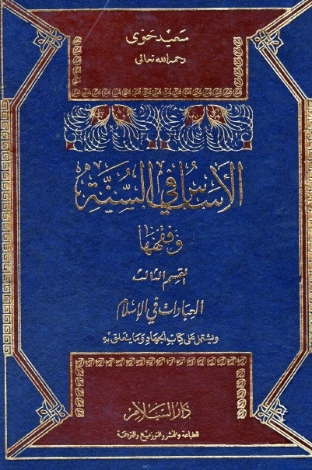 سعيد حوى
رحمه الله تعالى
الأساس في السنة
وفقهها
القسم الثالث
العبادات في الإسلام
ويشتمل على كتاب الجهاد وما يتعلق به
دار السلام
للطباعة والنشر والتوزيع والترجمة